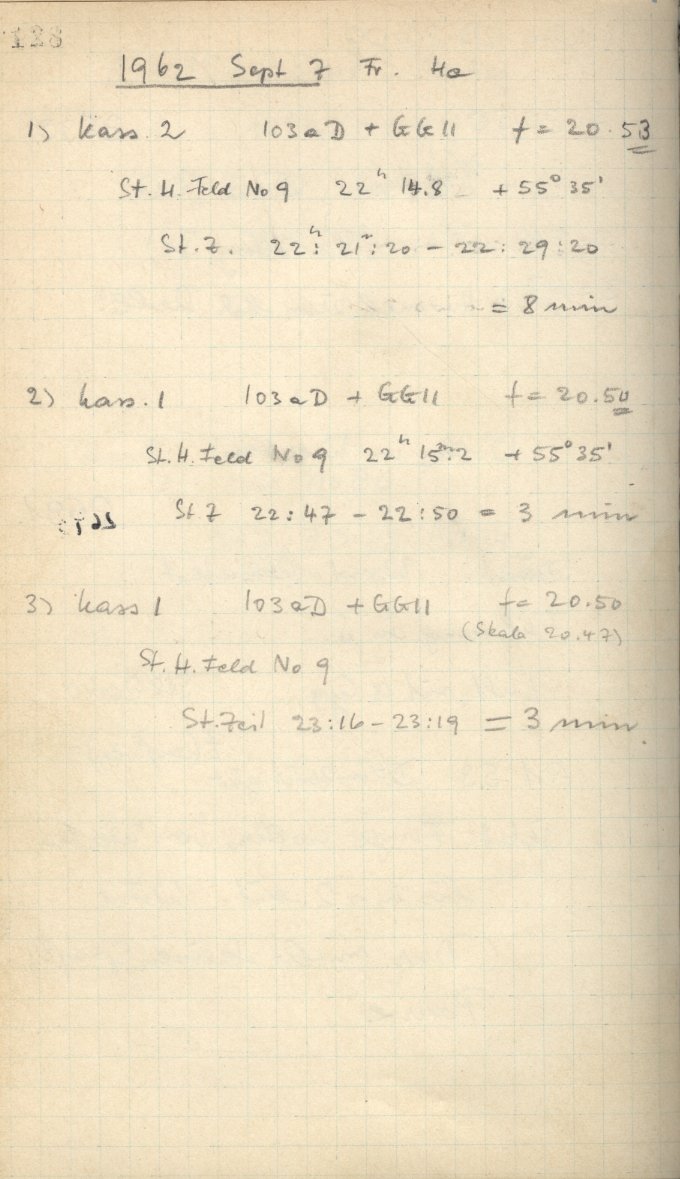 128
1962 Sept 7 Fr. Ha
1) Kass. 2 103aD + GG11 f = 20.53
St. H. Feld No 9 22h 14.8 + 55° 35'
St. Z. 22h: 21m: 20 - 22: 29: 20
= 8 min
2) Kass. 1 103aD + GG11 f = 20.50
St. H. Feld No 9 22h 15m.2 + 55° 35'
St Z 22:47 - 22:50 = 3 min
3) Kass 1 103aD + GG11 f = 20.50
(Skala 20.47)
St. H. Feld No 9
St. Zeit 23:16 - 23:19 = 3 min.